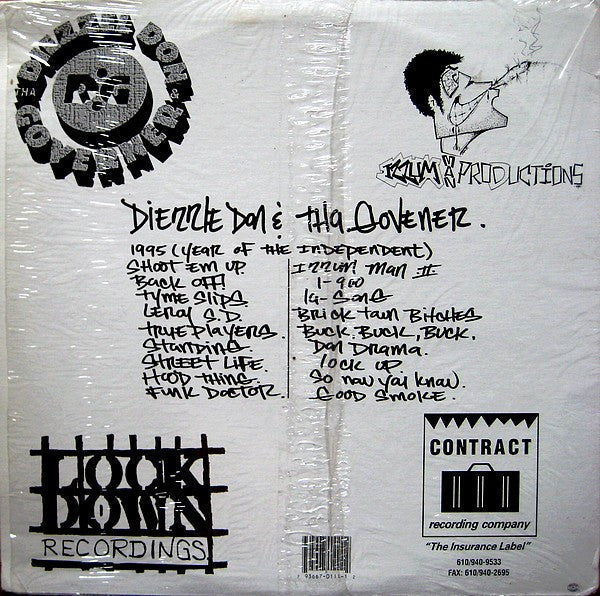 DIEZZLE DON
THA &
GOVERNER
PRODUCTIONS
DIEZZLE DON & THA GOVENER.
1995 (YEAR OF THE INDEPENDENT)
SHOOT EM UP
BACK OFF!
TYME SLIPS
LEROY S.D.
TRUE PLAYERS.
STANDING
STREET LIFE.
HOOD THING.
FUNK DOCTOR.
MAN II
1-900
IG-SONG
BRICK TOWN BITCHES
BUCK. BUCK, BUCK.
DON DRAMA.
LOCK UP
SO NOW YAI KNOW.
GOOD SMOKE.
LOCK
DOWN
RECORDINGS
CONTRACT
recording company
"The Insurance Label"
610/940-9533
FAX: 610/940-2695
7 93667-0111-1 2